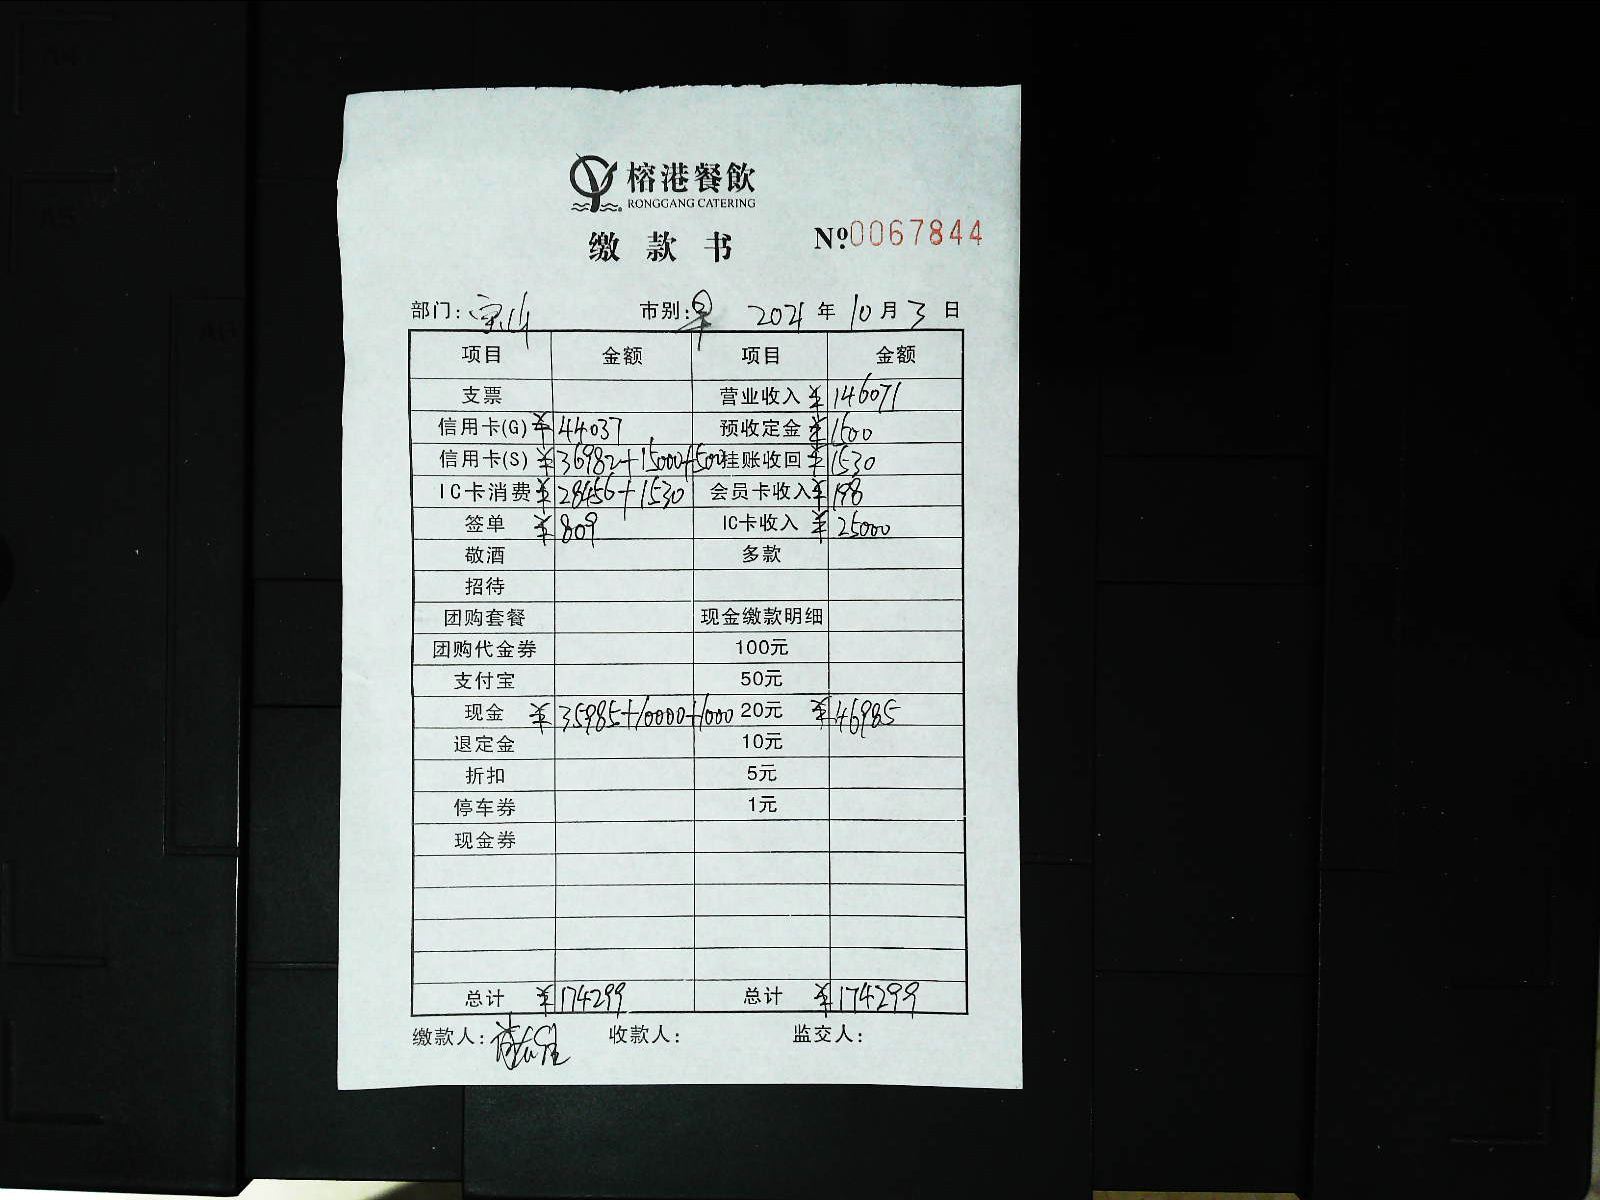 榕港餐飲
RONGGANG CATERING
缴款书 №0067844
部门:宝山 市别:早 2021年10月3日
项目 金额 项目 金额
支票 营业收入 ¥146071
信用卡(G) ¥44037 预收定金 ¥1500
信用卡(S) ¥36982+15000+500 挂账收回 ¥1530
IC卡消费 ¥28456+1530 会员卡收入 ¥198
签单 ¥809 IC卡收入 ¥25000
敬酒 多款
招待
团购套餐 现金缴款明细
团购代金券 100元
支付宝 50元
现金 ¥35985+10000+1000 20元 ¥46985
退定金 10元
折扣 5元
停车券 1元
现金券
总计 ¥174299 总计 ¥174299
缴款人: 收款人: 监交人: